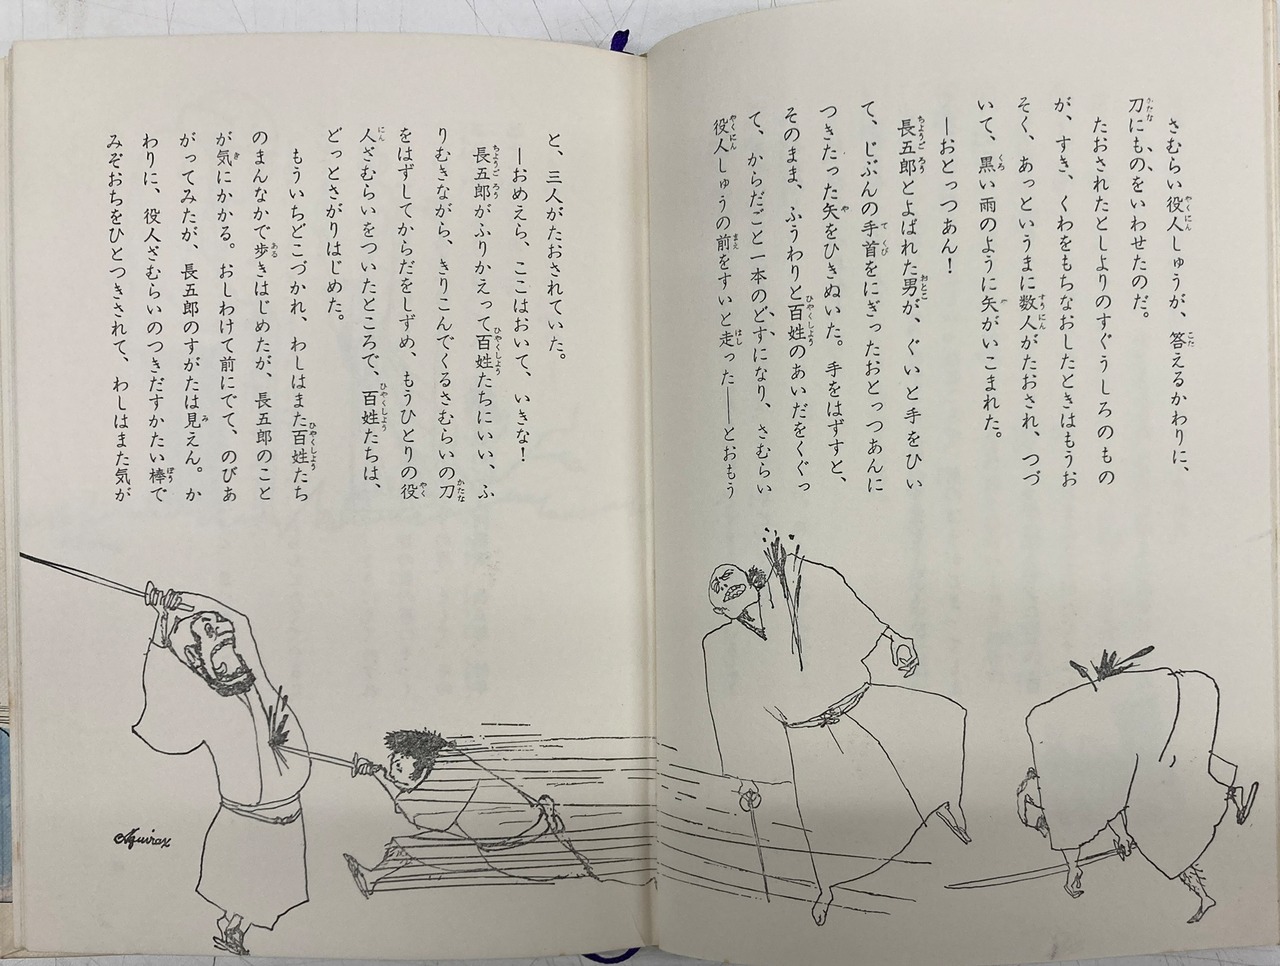 さむらい役人しゅうが、答えるかわりに、
刀にものをいわせたのだ。
たおされたとしよりのすぐうしろのもの
が、すき、くわをもちなおしたときはもうお
そく、あっというまに数人がたおされ、つづ
いて、黒い雨のように矢がいこまれた。
―おとっつあん！
長五郎とよばれた男が、ぐいと手をひい
て、じぶんの手首をにぎったおとっつあんに
つきたった矢をひきぬいた。手をはずすと、
そのまま、ふうわりと百姓のあいだをくぐっ
て、からだごと一本のどすになり、さむらい
役人しゅうの前をすいと走った――とおもう
と、三人がたおされていた。
―おめえら、ここはおいて、いきな！
長五郎がふりかえって百姓たちにいい、ふ
りむきながら、きりこんでくるさむらいの刀
をはずしてからだをしずめ、もうひとりの役
人ざむらいをついたところで、百姓たちは、
どっとさがりはじめた。
もういちどこづかれ、わしはまた百姓たち
のまんなかで歩きはじめたが、長五郎のこと
が気にかかる。おしわけて前にでて、のびあ
がってみたが、長五郎のすがたは見えん。か
わりに、役人ざむらいのつきだすかたい棒で
みぞおちをひとつきされて、わしはまた気が